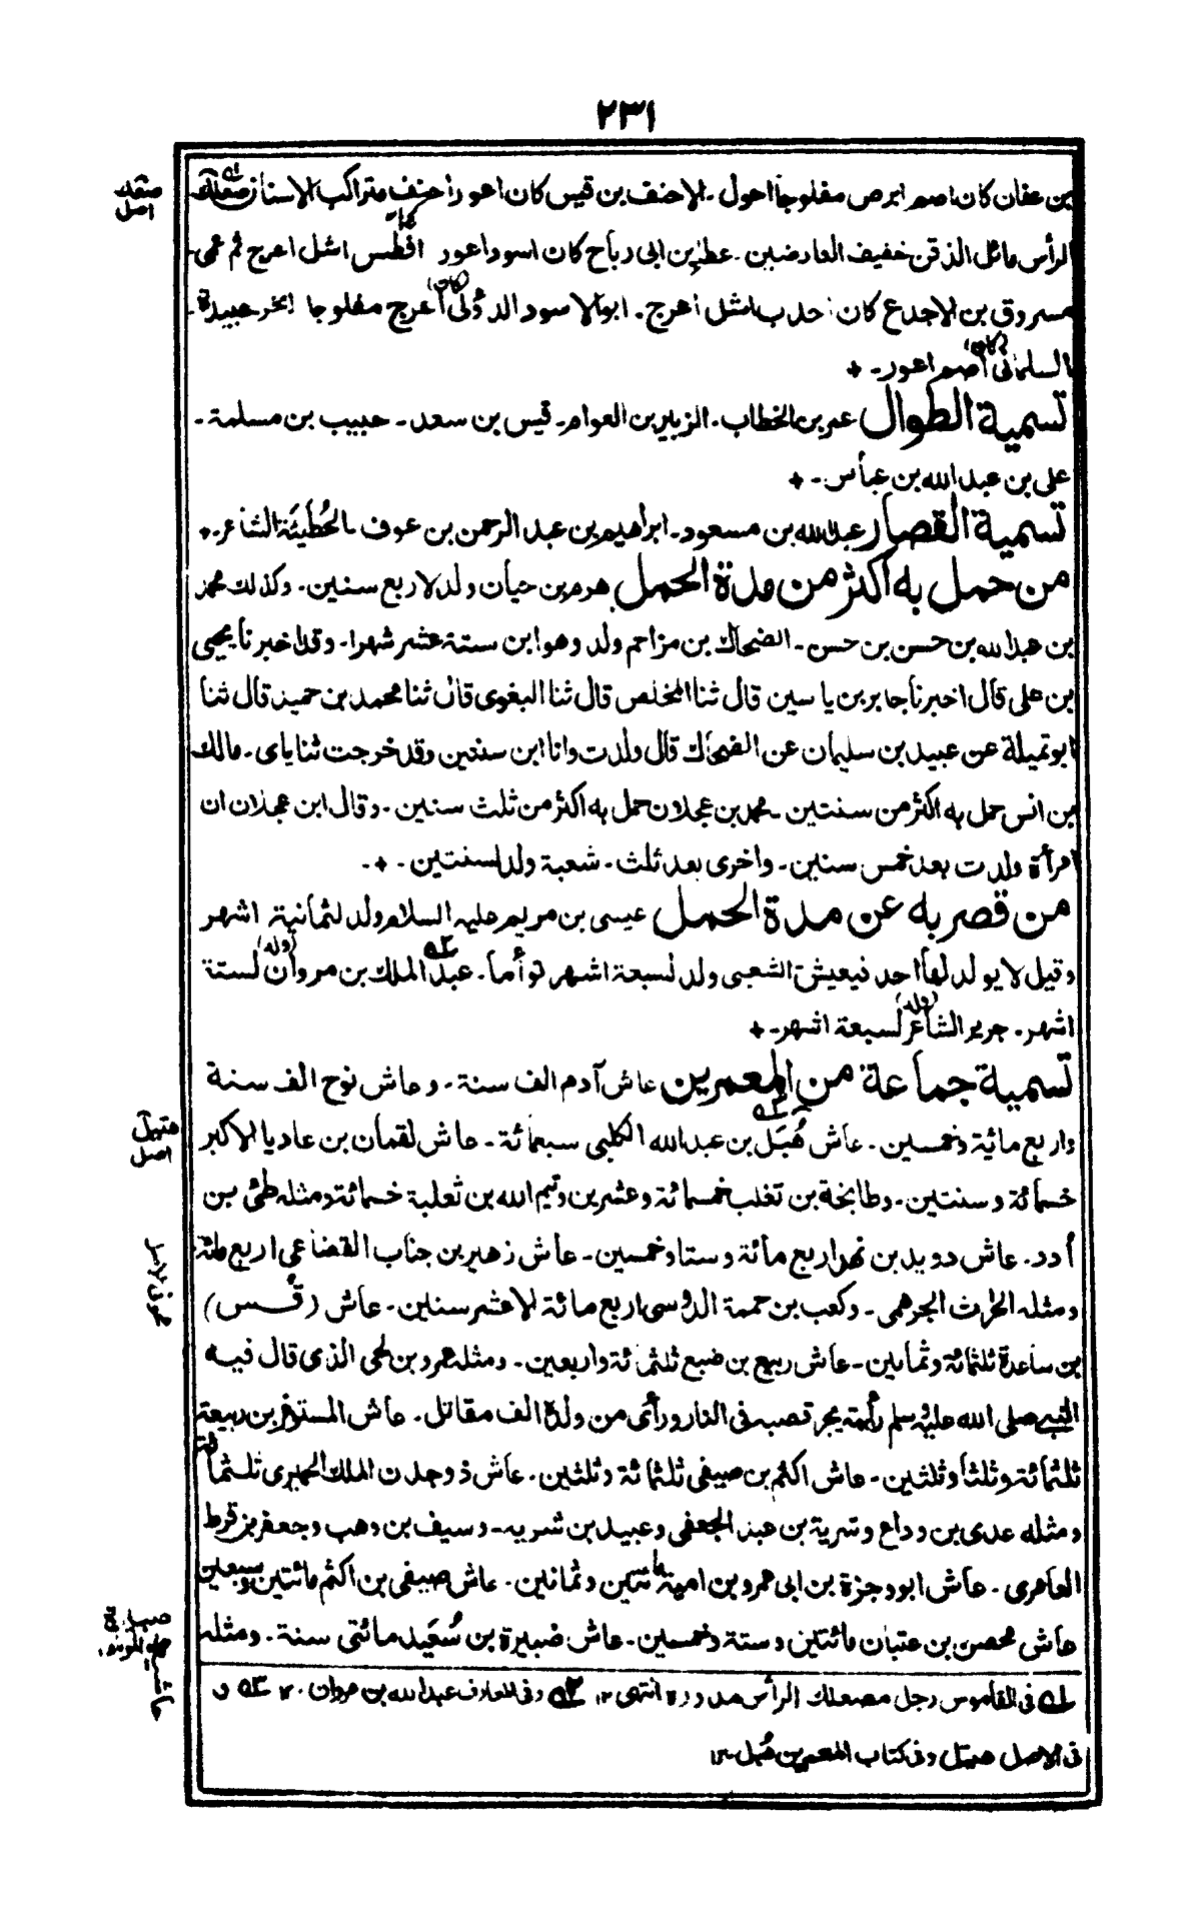 ٢٣١
بن عفان كان اصم ابرص مفلوجا احول ـ الاحنف بن قيس كان اعور احنف متراكب الاسنان صعلك
الرأس مائل الذقن خفيف العارضين ـ عطاء بن ابى رباح كان اسود اعور افطس اشل اعرج ثم عمى ـ
مسروق بن الاجدع كان احدب اشل اعرج ـ ابو الاسود الدؤلى (كان) اعرج مفلوجا ابخر عبيدة
السلمانى (كان) اصم اعور ـ
تسمية الطوال عمر بن الخطاب ـ الزبير بن العوام ـ قيس بن سعد ـ حبيب بن مسلمة ـ
على بن عبد الله بن عباس ـ
تسمية القصار عبد الله بن مسعود ـ ابراهيم بن عبد الرحمن بن عوف ـ الحُطَيئَة الشاعر ـ
من حمل به اكثر من مدة الحمل هرم بن حيان ولد لاربع سنين ـ وكذلك محمد
بن عبد الله بن حسن بن حسن ـ الضحاك بن مزاحم ولد وهو ابن ستة عشر شهرا ـ وقد اخبرنا يحيى
بن على قال اخبرنا جابر بن ياسين قال ثنا المخلص قال ثنا البغوى قال ثنا محمد بن حميد قال ثنا
ابو تميلة عن عبيد بن سليمان عن الضحاك قال ولدت وانا ابن سنتين وقد خرجت ثناياى ـ مالك
بن انس حمل به اكثر من سنتين ـ محمد بن عجلان حمل به اكثر من ثلث سنين ـ وقال ابن عجلان ان
امرأة ولدت بعد خمس سنين ـ واخرى بعد ثلث ـ شعبة ولد لسنتين ـ
من قصر به عن مدة الحمل عيسى بن مريم عليه السلام ولد لثمانية اشهر
وقيل لا يولد لها احد فيعيش الشعبى ولد لسبعة اشهر توأما ـ عبد الملك بن مروان (ولد) لستة
اشهر ـ جرير الشاعر (ولد) لسبعة اشهر ـ
تسمية جماعة من المعمرين عاش آدم الف سنة ـ وعاش نوح الف سنة
واربع مائية وخمسين ـ عاش هُبَل بن عبد الله الكلبى سبعمائة ـ عاش لقمان بن عاديا الاكبر
خسمائة وستين ـ وطابخة بن تغلب خمسمائة وعشرين وتيم الله بن ثعلبة خسمائة ومثله طئ بن
أدد ـ عاش دويد بن نهد اربع مائة وستا وخمسين ـ عاش زهير بن جناب القضاعى اربع مائة
ومثله الحرث الجرهمى ـ وكعب بن حممة الدوسى اربع مائة الا عشر سنين ـ عاش (قُس)
بن ساعدة ثلثمائة وثمانين ـ عاش ربيع بن ضبع ثلثمائة واربعين ـ ومثله عمرو بن لحى الذى قال فيه
النبى صلى الله عليه وسلم رأيته يجر قصبه فى النار ورأى من ولده الف مقاتل ـ عاش المستوغر بن ربيعة
ثلثمائة وثلثا وثلثين ـ عاش اكثم بن صيفى ثلثمائة وثلثين ـ عاش ذو جدن الملك الحميرى ثلثمائة
ومثله عدى بن وداع وشرية بن عبد الجعفى وعبيد بن شريه ـ وسيف بن وهب وجعفر بن قرط
العامرى ـ عاش ابو وجزة بن ابى عمرو بن امية مائتين وثمانين ـ عاش صيفى بن اكثم مائتين وسبعين
عاش محصن بن عتبان مائتين وستة وخمسين ـ عاش ضبيرة بن سُعَيد مائتى سنة ـ ومثله
له فى القاموس رجل مصعلك الرأس مدوره انتهى ١٢ ٢ه وفى المعارف عبد الله بن مروان ١٢ ٣ه و
فى الاصل هبتل وفى كتاب المعمرين هُبل ١٢
صعلك
اصل
هتبل
اصل